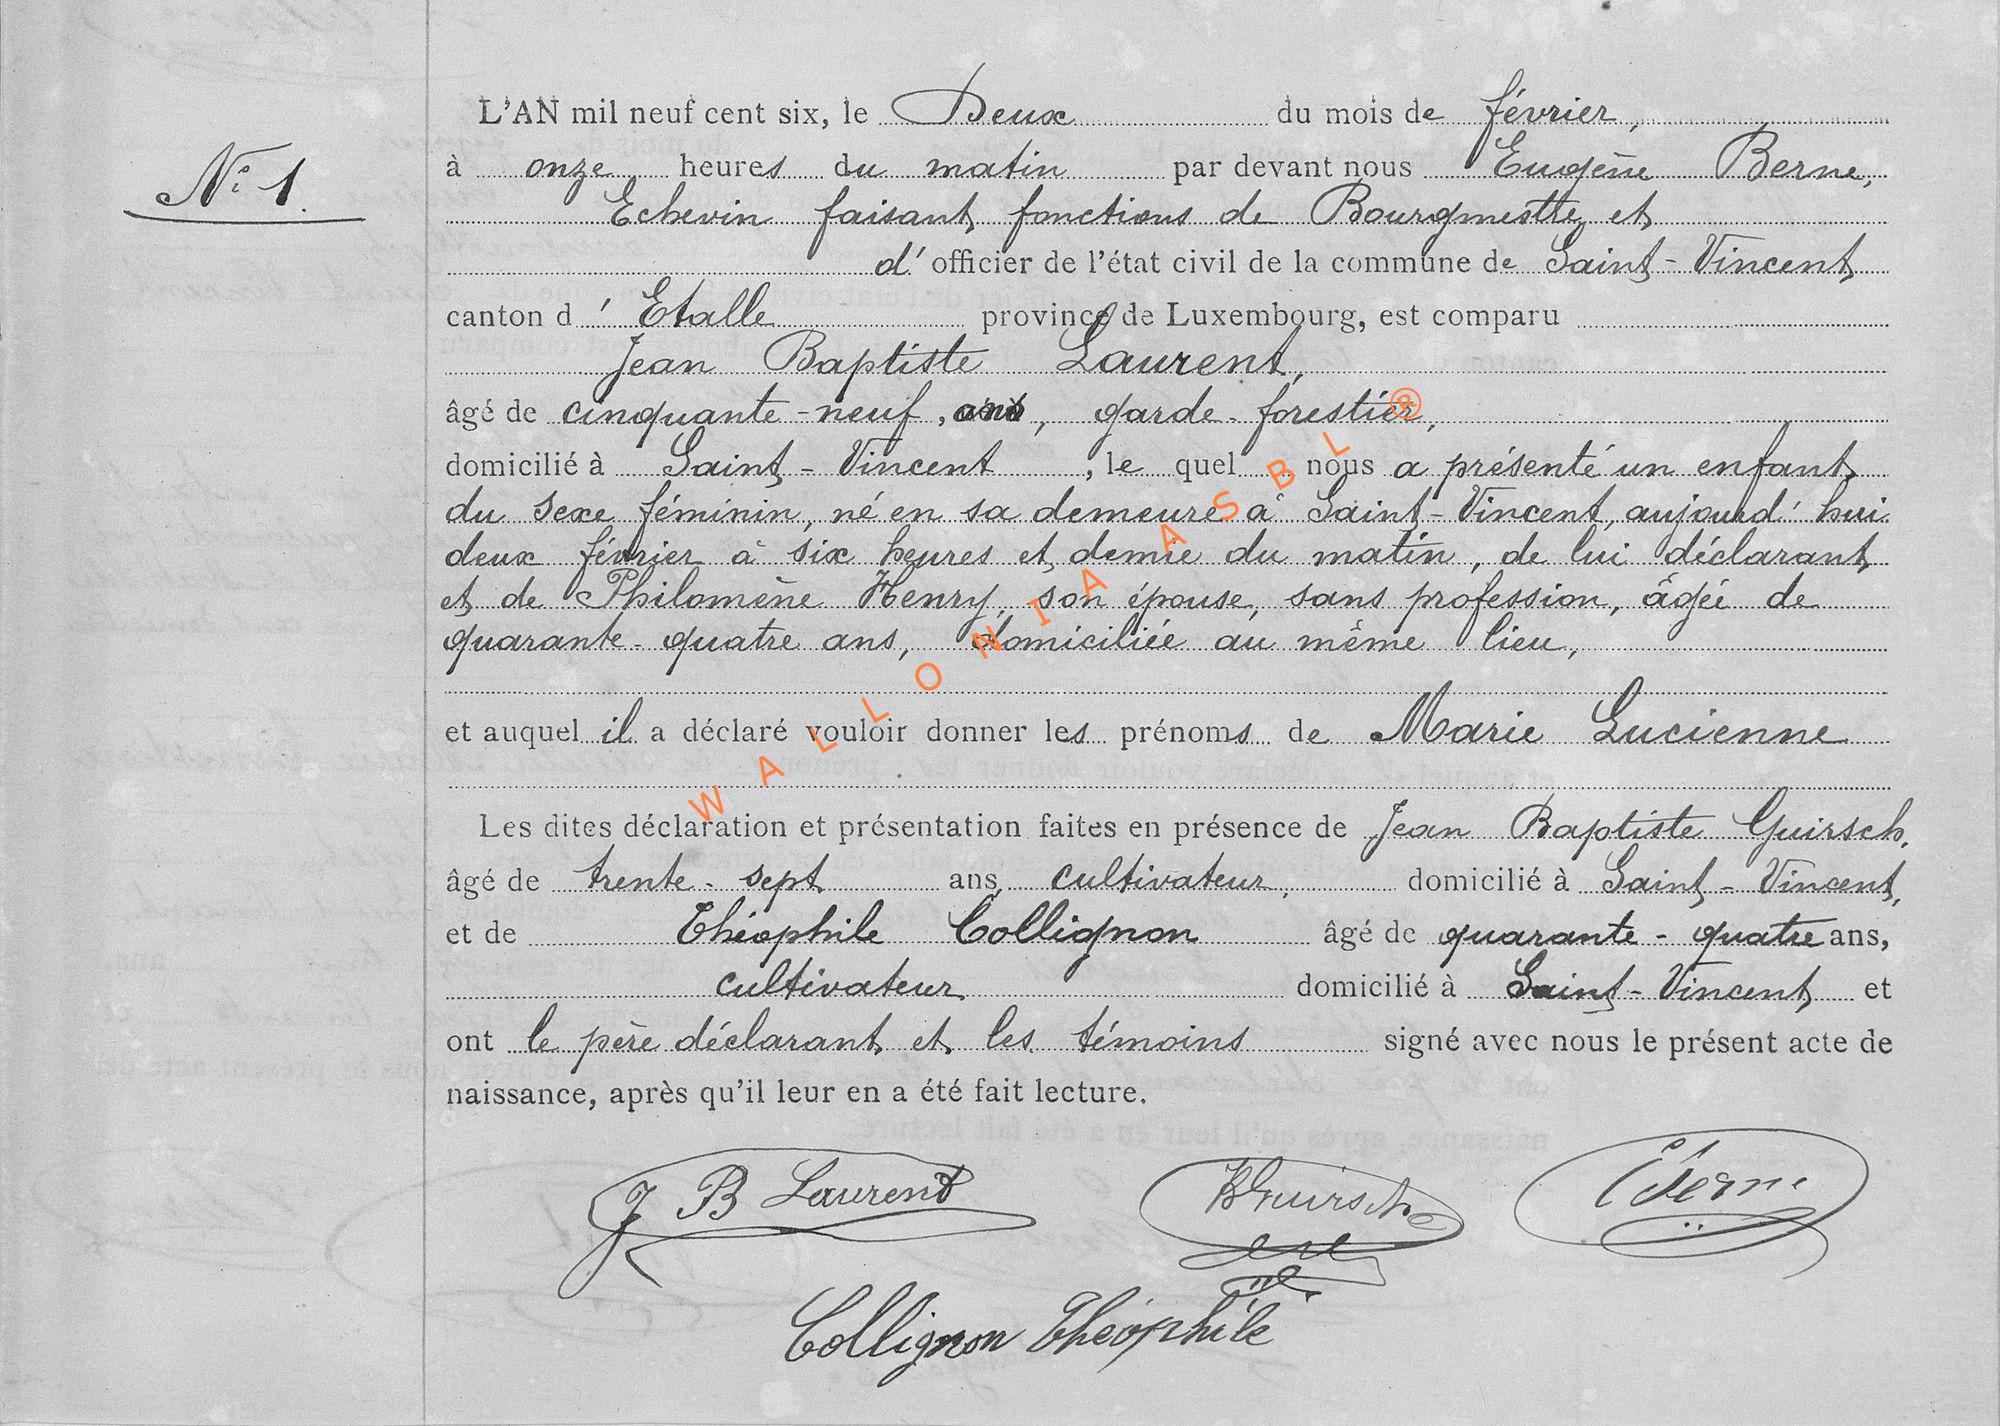 N° 1.
L'AN mil neuf cent six, le Deux du mois de février,
à onze heures du matin par devant nous Eugène Berne,
Echevin faisant fonctions de Bourgmestre et
d' officier de l'état civil de la commune de Saint-Vincent
canton d' Etalle province de Luxembourg, est comparu
Jean Baptiste Laurent,
âgé de cinquante-neuf, ans, garde-forestier,
domicilié à Saint-Vincent, le quel nous a présenté un enfant
du sexe féminin, né en sa demeure à Saint-Vincent, aujourd'hui
deux février à six heures et demie du matin, de lui déclarant
et de Philomène Henry, son épouse, sans profession, âgée de
quarante-quatre ans, domiciliée au même lieu,
et auquel il a déclaré vouloir donner les prénoms de Marie Lucienne
Les dites déclaration et présentation faites en présence de Jean Baptiste Guirsch,
âgé de trente-sept ans, cultivateur, domicilié à Saint-Vincent,
et de Théophile Collignon âgé de quarante-quatre ans,
cultivateur domicilié à Saint-Vincent et
ont le père déclarant et les témoins signé avec nous le présent acte de
naissance, après qu'il leur en a été fait lecture.
J B Laurent JBGuirsch EBerne
Collignon Théophile
WALLONIA ASBL ®